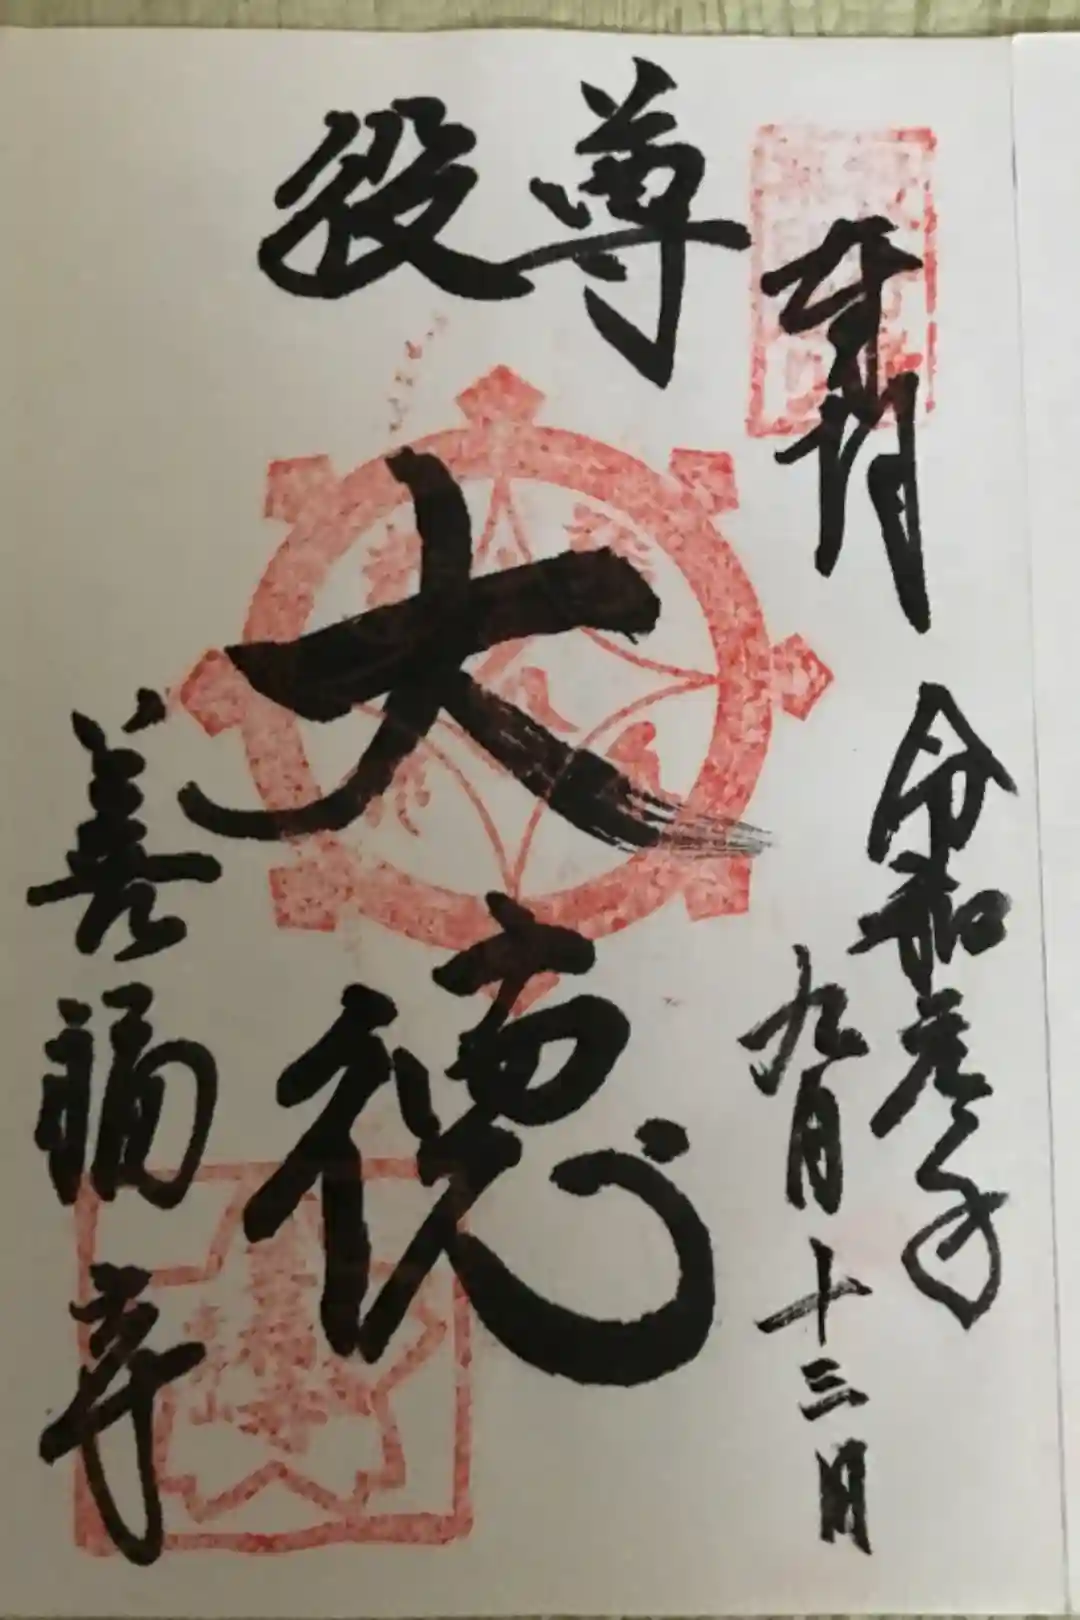 奉拝
令和参年
九月十三日
尊役
大徳
善福寺